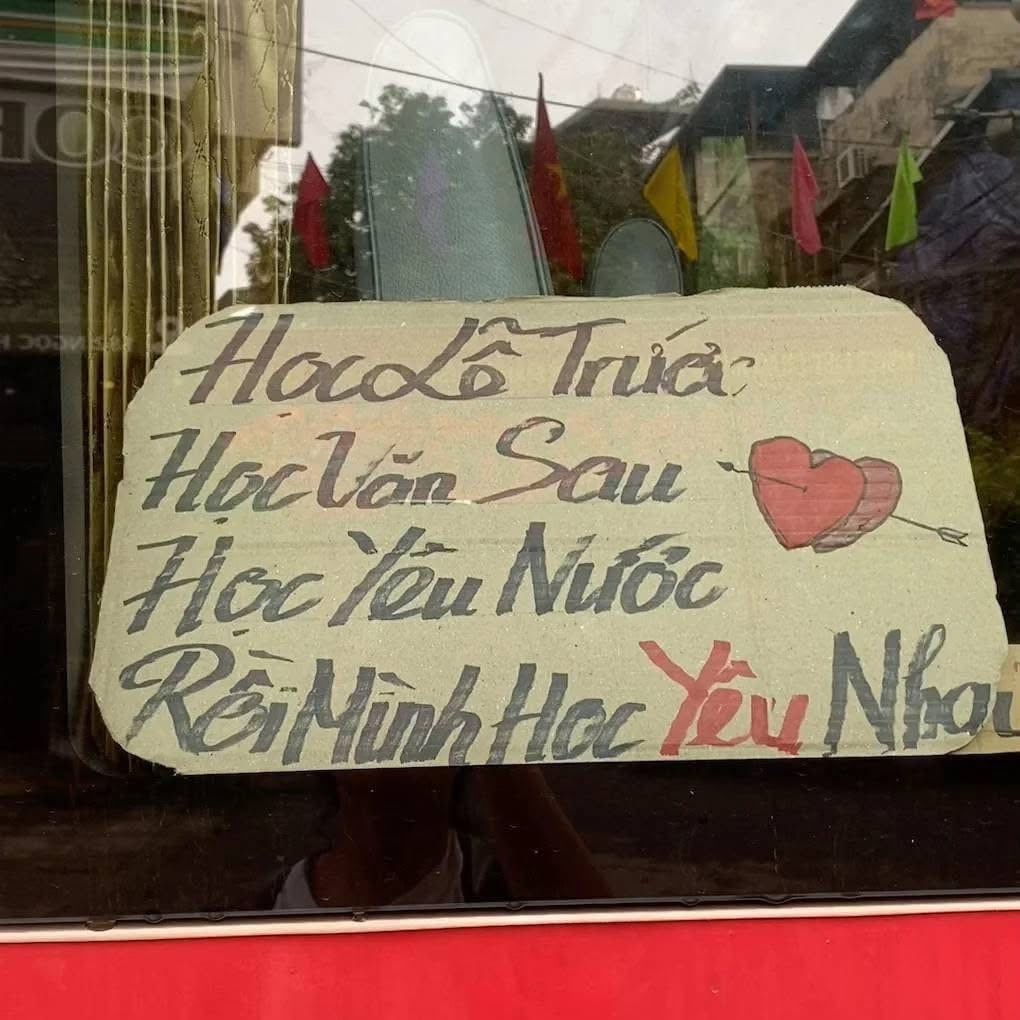 Học Lễ Trước
Học Văn Sau
Học Yêu Nước
Rồi Mình Học Yêu Nhau